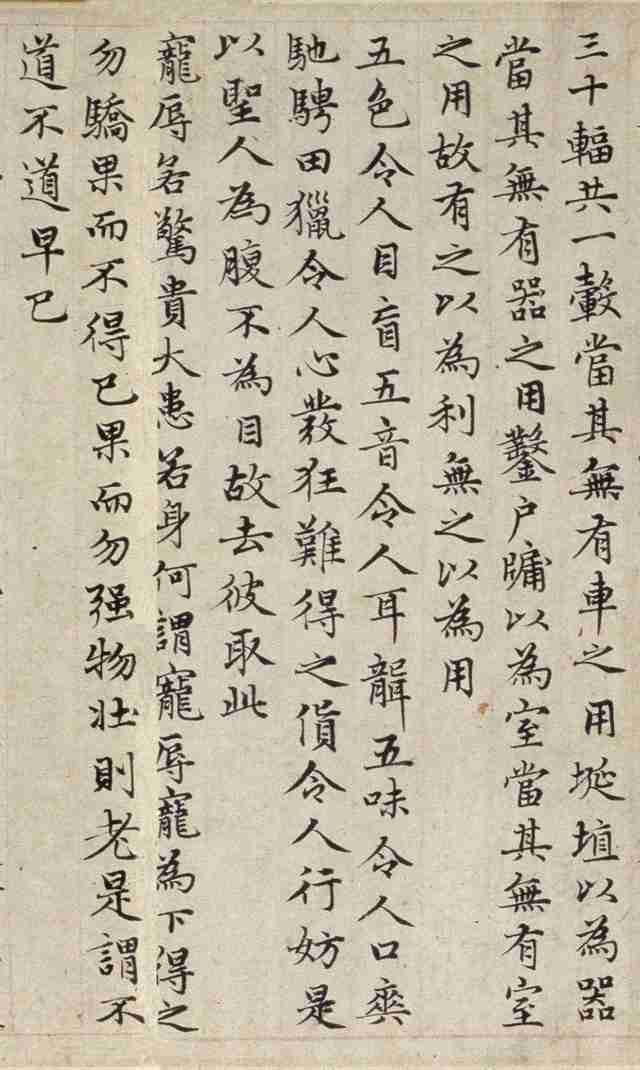 三十輻共一轂當其無有車之用埏埴以為器
當其無有器之用鑿户牖以為室當其無有室
之用故有之以為利無之以為用
五色令人目盲五音令人耳聾五味令人口爽
馳騁田獵令人心發狂難得之貨令人行妨是
以聖人為腹不為目故去彼取此
寵辱若驚貴大患若身何謂寵辱寵為下得之
勿驕果而不得已果而勿强物壯則老是謂不
道不道早已